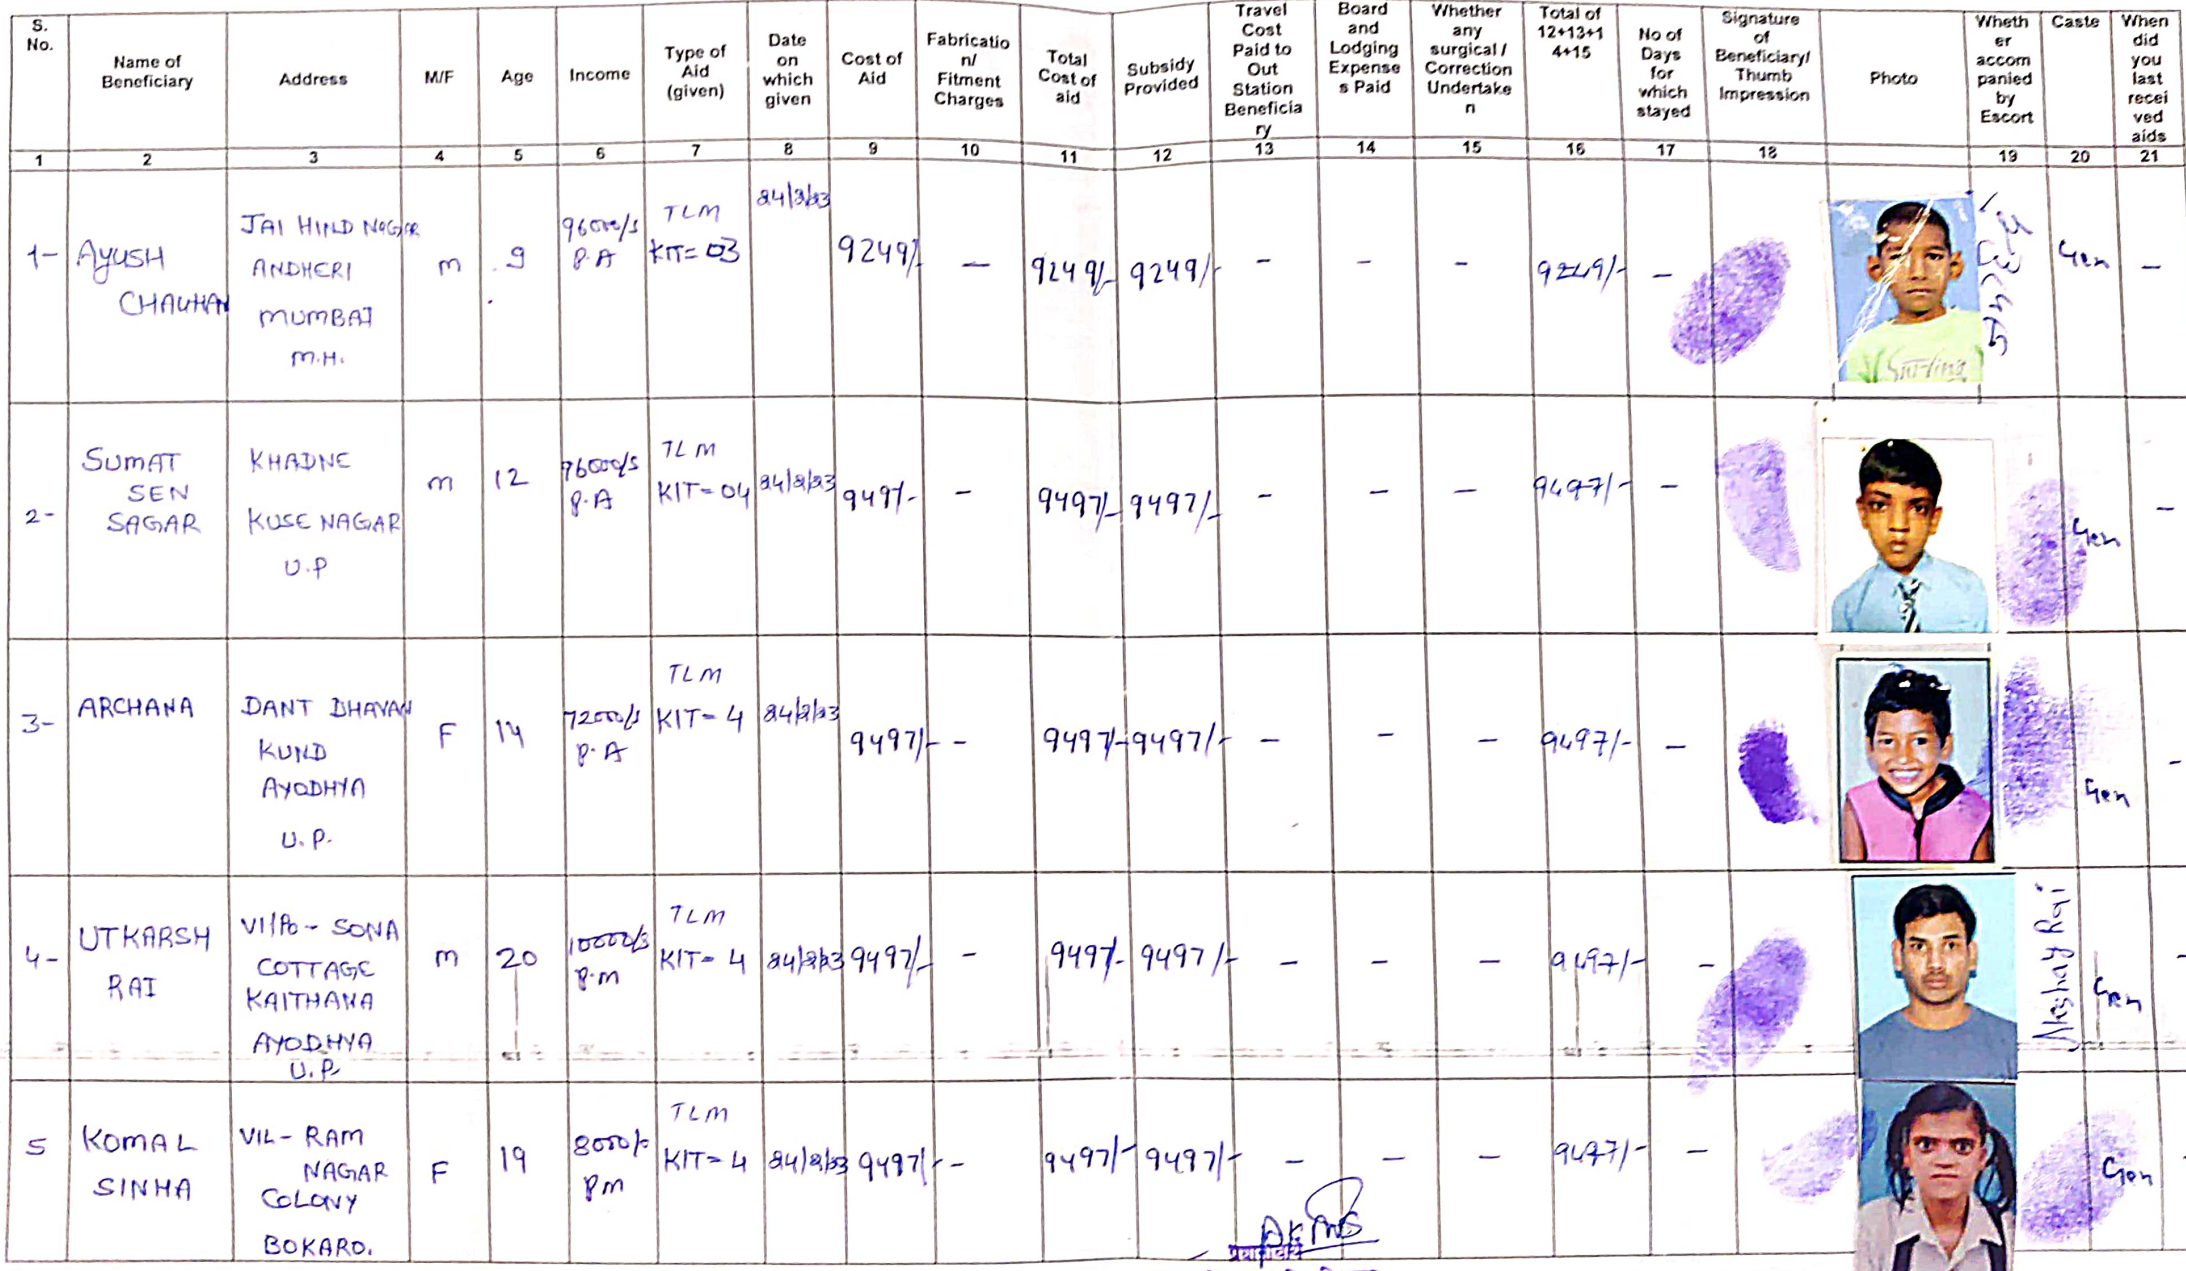 S. No.
Name of Beneficiary
Address
M/F
Age
Income
Type of Aid (given)
Date on which given
Cost of Aid
Fabricatio n/ Fitment Charges
Total Cost of aid
Subsidy Provided
Travel Cost Paid to Out Station Beneficia ry
Board and Lodging Expense s Paid
Whether any surgical / Correction Undertake n
Total of 12+13+1 4+15
No of Days for which stayed
Signature of Beneficiary/ Thumb Impression
Photo
Wheth er accom panied by Escort
Caste
When did you last recei ved aids
1 2 3 4 5 6 7 8 9 10 11 12 13 14 15 16 17 18 19 20 21
1- AYUSH CHAUHAN
JAI HIND NAGAR
ANDHERI
MUMBAI
M.H.
m 9
P.A
TLM
KIT= 03
9249/- — 9249/- 9249/- - - - 9249/- - Gen -
2- SUMAT SEN SAGAR
KHADNE
KUSE NAGAR
U.P
m 12
P.A
TLM
KIT- 04
9497/- - 9497/- 9497/- - - - 9497/- - Gen -
3- ARCHANA
DANT DHAVAN
KUND
AYODHYA
U.P.
F 14
P.A
TLM
KIT- 4
9497/- - 9497/- 9497/- - - - 9497/- - Gen -
4- UTKARSH RAI
SONA
COTTAGE
KAITHANA
AYODHYA
U.P.
m 20
P.m
TLM
KIT- 4
9497/- - 9497/- 9497/- - - - 9497/- - Akshay Rai Gen -
5 KOMAL SINHA
VIL- RAM
NAGAR
COLONY
BOKARO.
F 19
8000/-
Pm
TLM
KIT- 4
9497/- - 9497/- 9497/- - - - 9497/- - Gen -